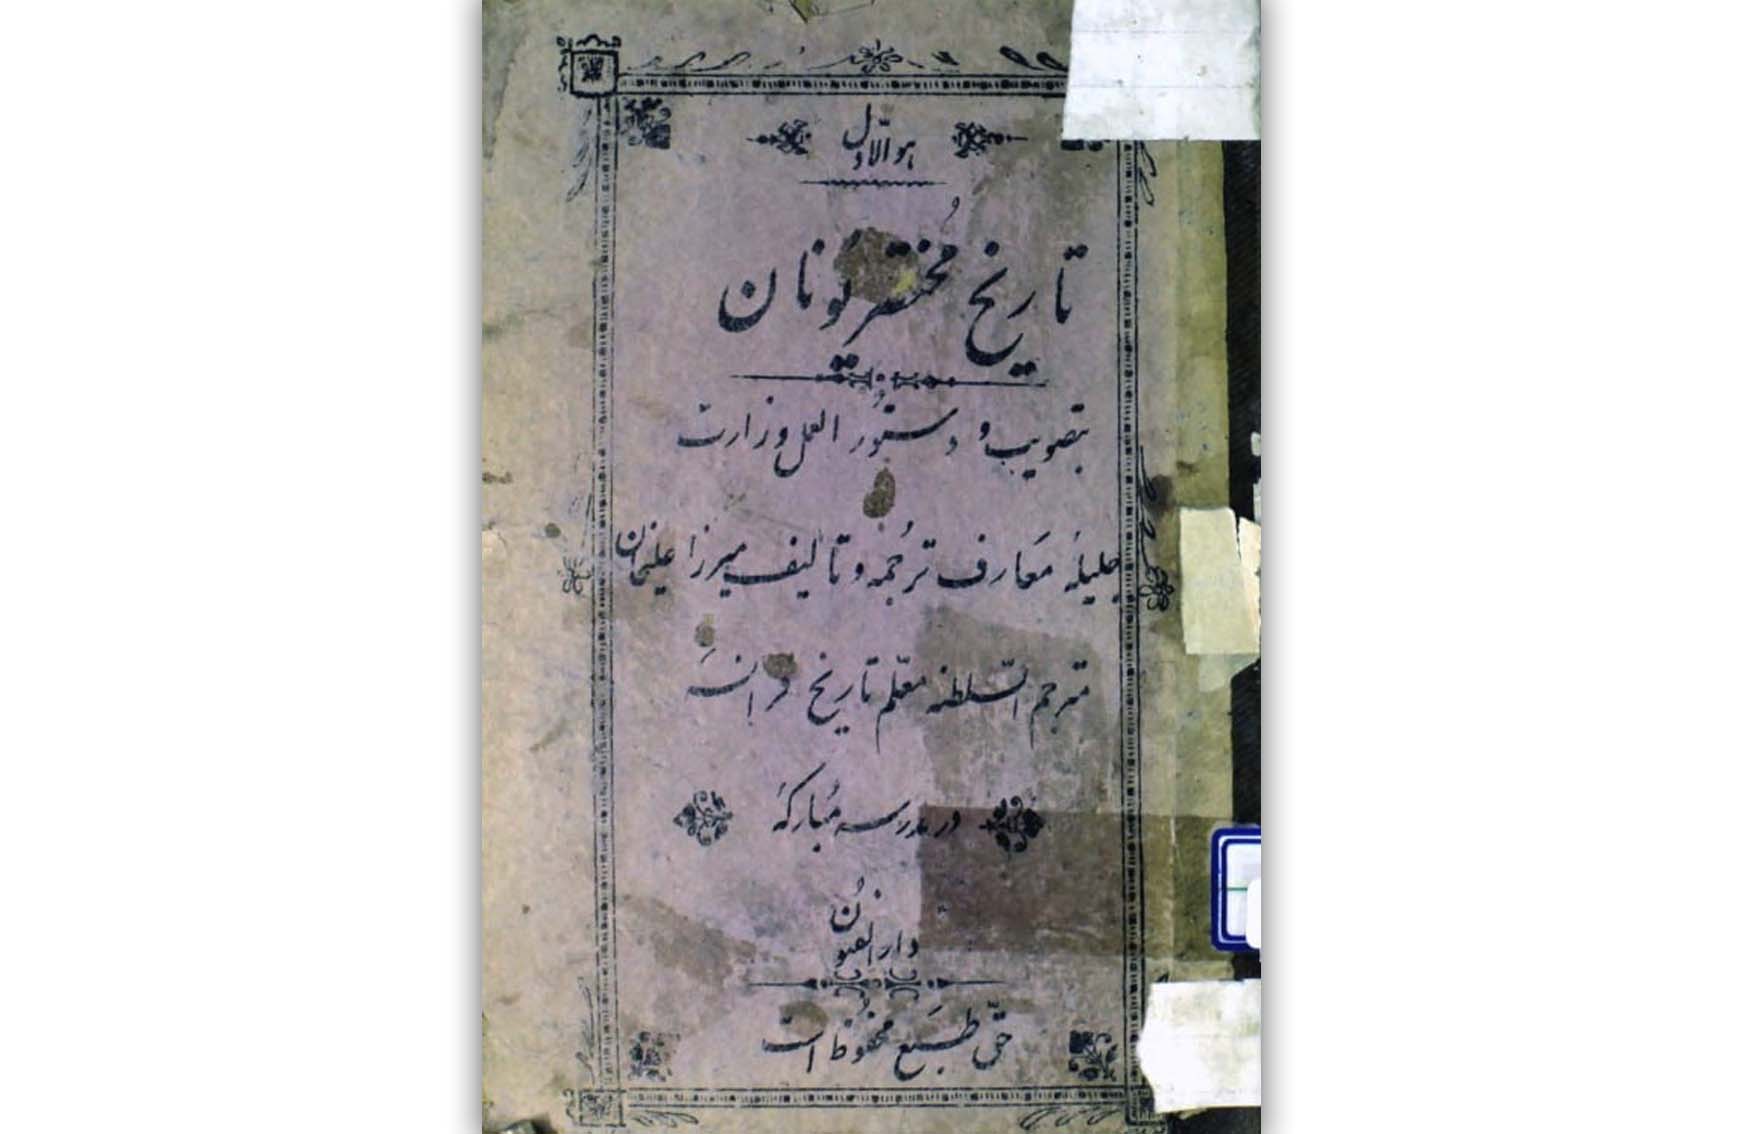 هوالاول
تاریخ مختصر یونان
بتصویب و دستور العمل وزارت
جلیلهٔ معارف ترجمه و تالیف میرزا علیخان
مترجم السّلطنه معلّم تاریخ فرانسه
در مدرسه مبارکهٔ
دار الفنون
حقّ طبع محفوظ است